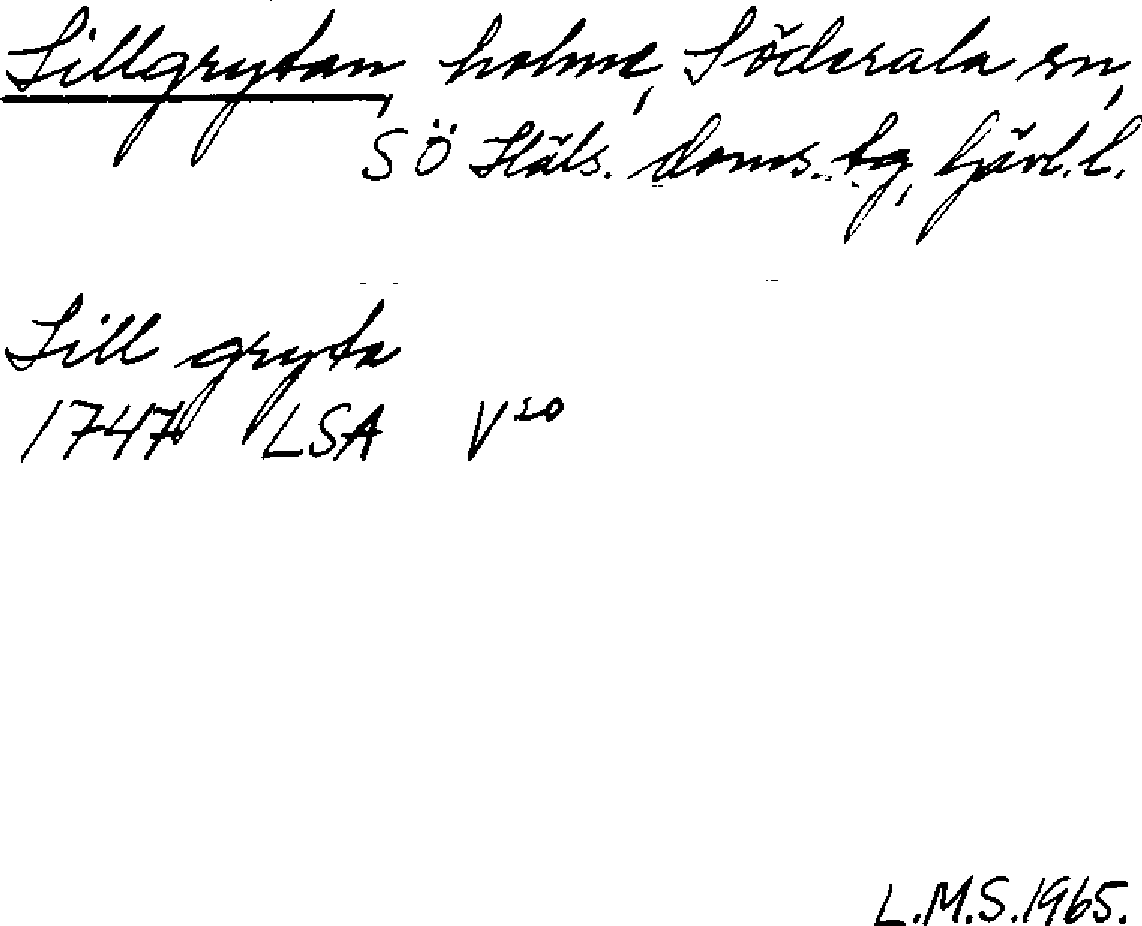 Sillgrytan, holme, Söderala sn,
SÖ Häls. doms. tg, Gävl.l.
Sill gryta
1747 LSA V²⁰
L.M.S. 1965.